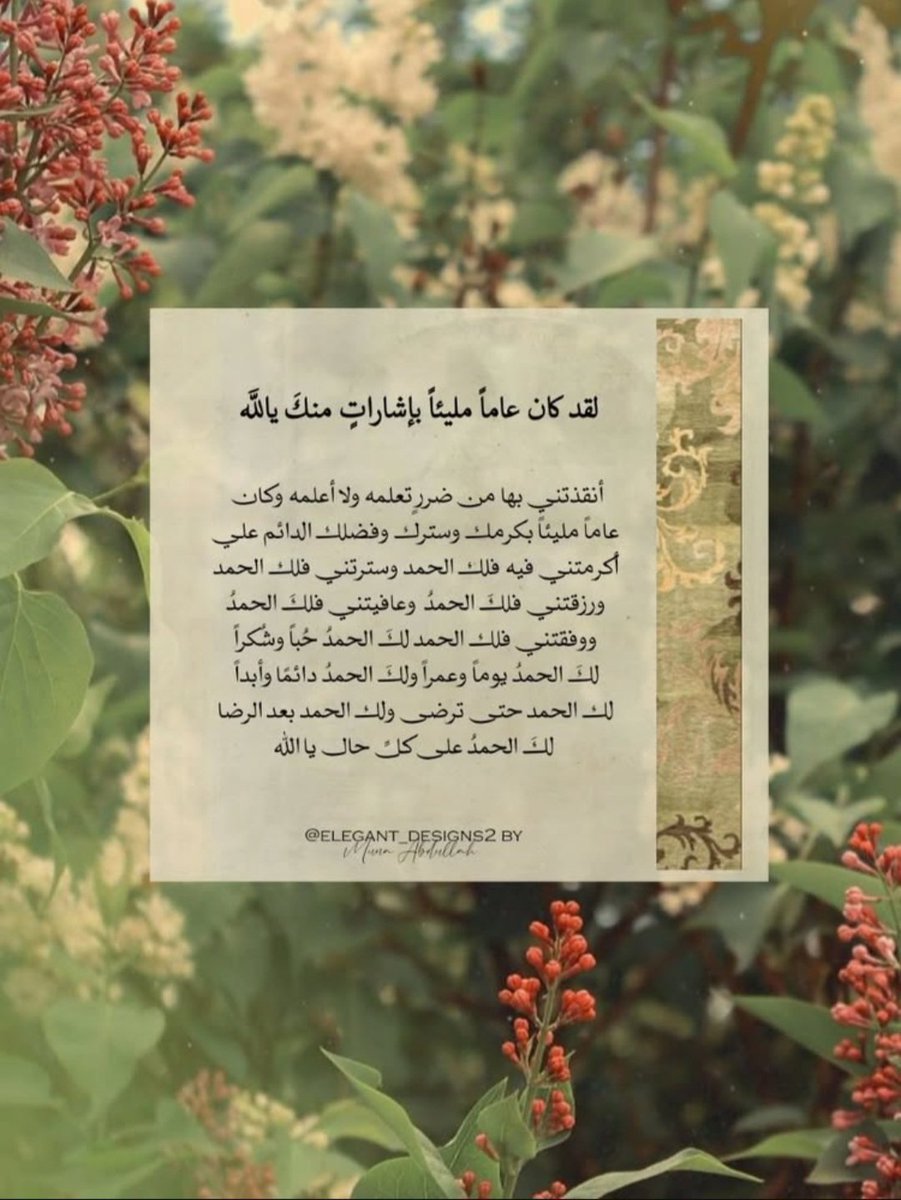 لقد كان عاماً مليئاً بإشاراتٍ منكَ ياللَّه
أنقذتني بها من ضررٍ تعلمه ولا أعلمه وكان
عاماً مليئاً بكرمك وسترك وفضلك الدائم علي
أكرمتني فيه فلك الحمد وسترتني فلك الحمد
ورزقتني فلكَ الحمدُ وعافيتني فلكَ الحمدُ
ووفقتني فلك الحمد لكَ الحمدُ حُباً وشُكراً
لكَ الحمدُ يوماً وعمراً ولكَ الحمدُ دائمًا وأبداً
لك الحمد حتى ترضى ولك الحمد بعد الرضا
لكَ الحمدُ على كلِّ حال يا الله
@ELEGANT_DESIGNS2 BY
Muna Abdullah